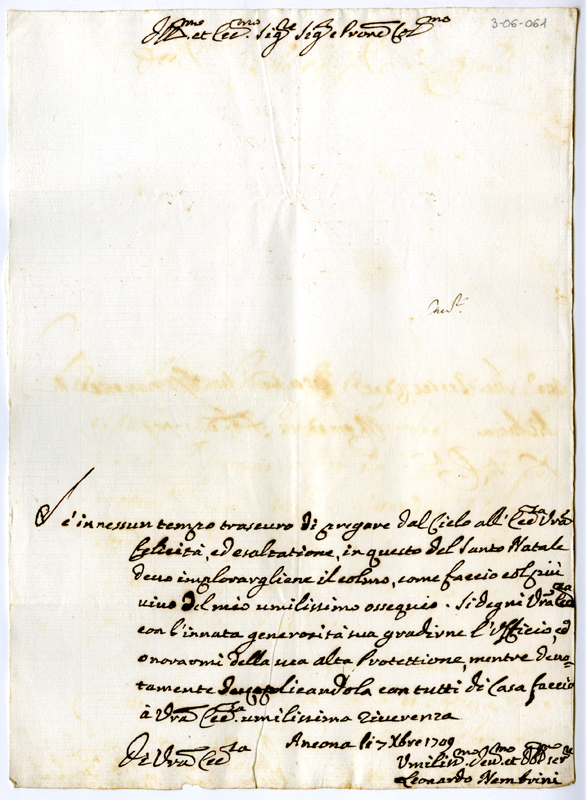 3-06-061
Ill.mo et Ecc.mo Sig.re Sig.e Prone Col.mo
Se in nessun tempo trascuro di pregare dal Cielo all' Ecc.za Vra
felicità, ed esaltatione, in questo del Santo Natale
devo implorargliene il colmo, come faccio col più
vivo del mio umilissimo ossequio. Si degni Vra Ecc.za
con l'innata generosità sua gradirne l'Ufficio, ed
onorarmi della sua alta Protettione, mentre devo-
tamente supplicandola con tutti di Casa faccio
à Vra Ecc.za umilissima riverenza
Ancona li 7 Xbre 1709
Di Vra Ecc.za
Umiliss.mo Dev.mo et Obl.mo Ser.re
Leonardo Nembrini